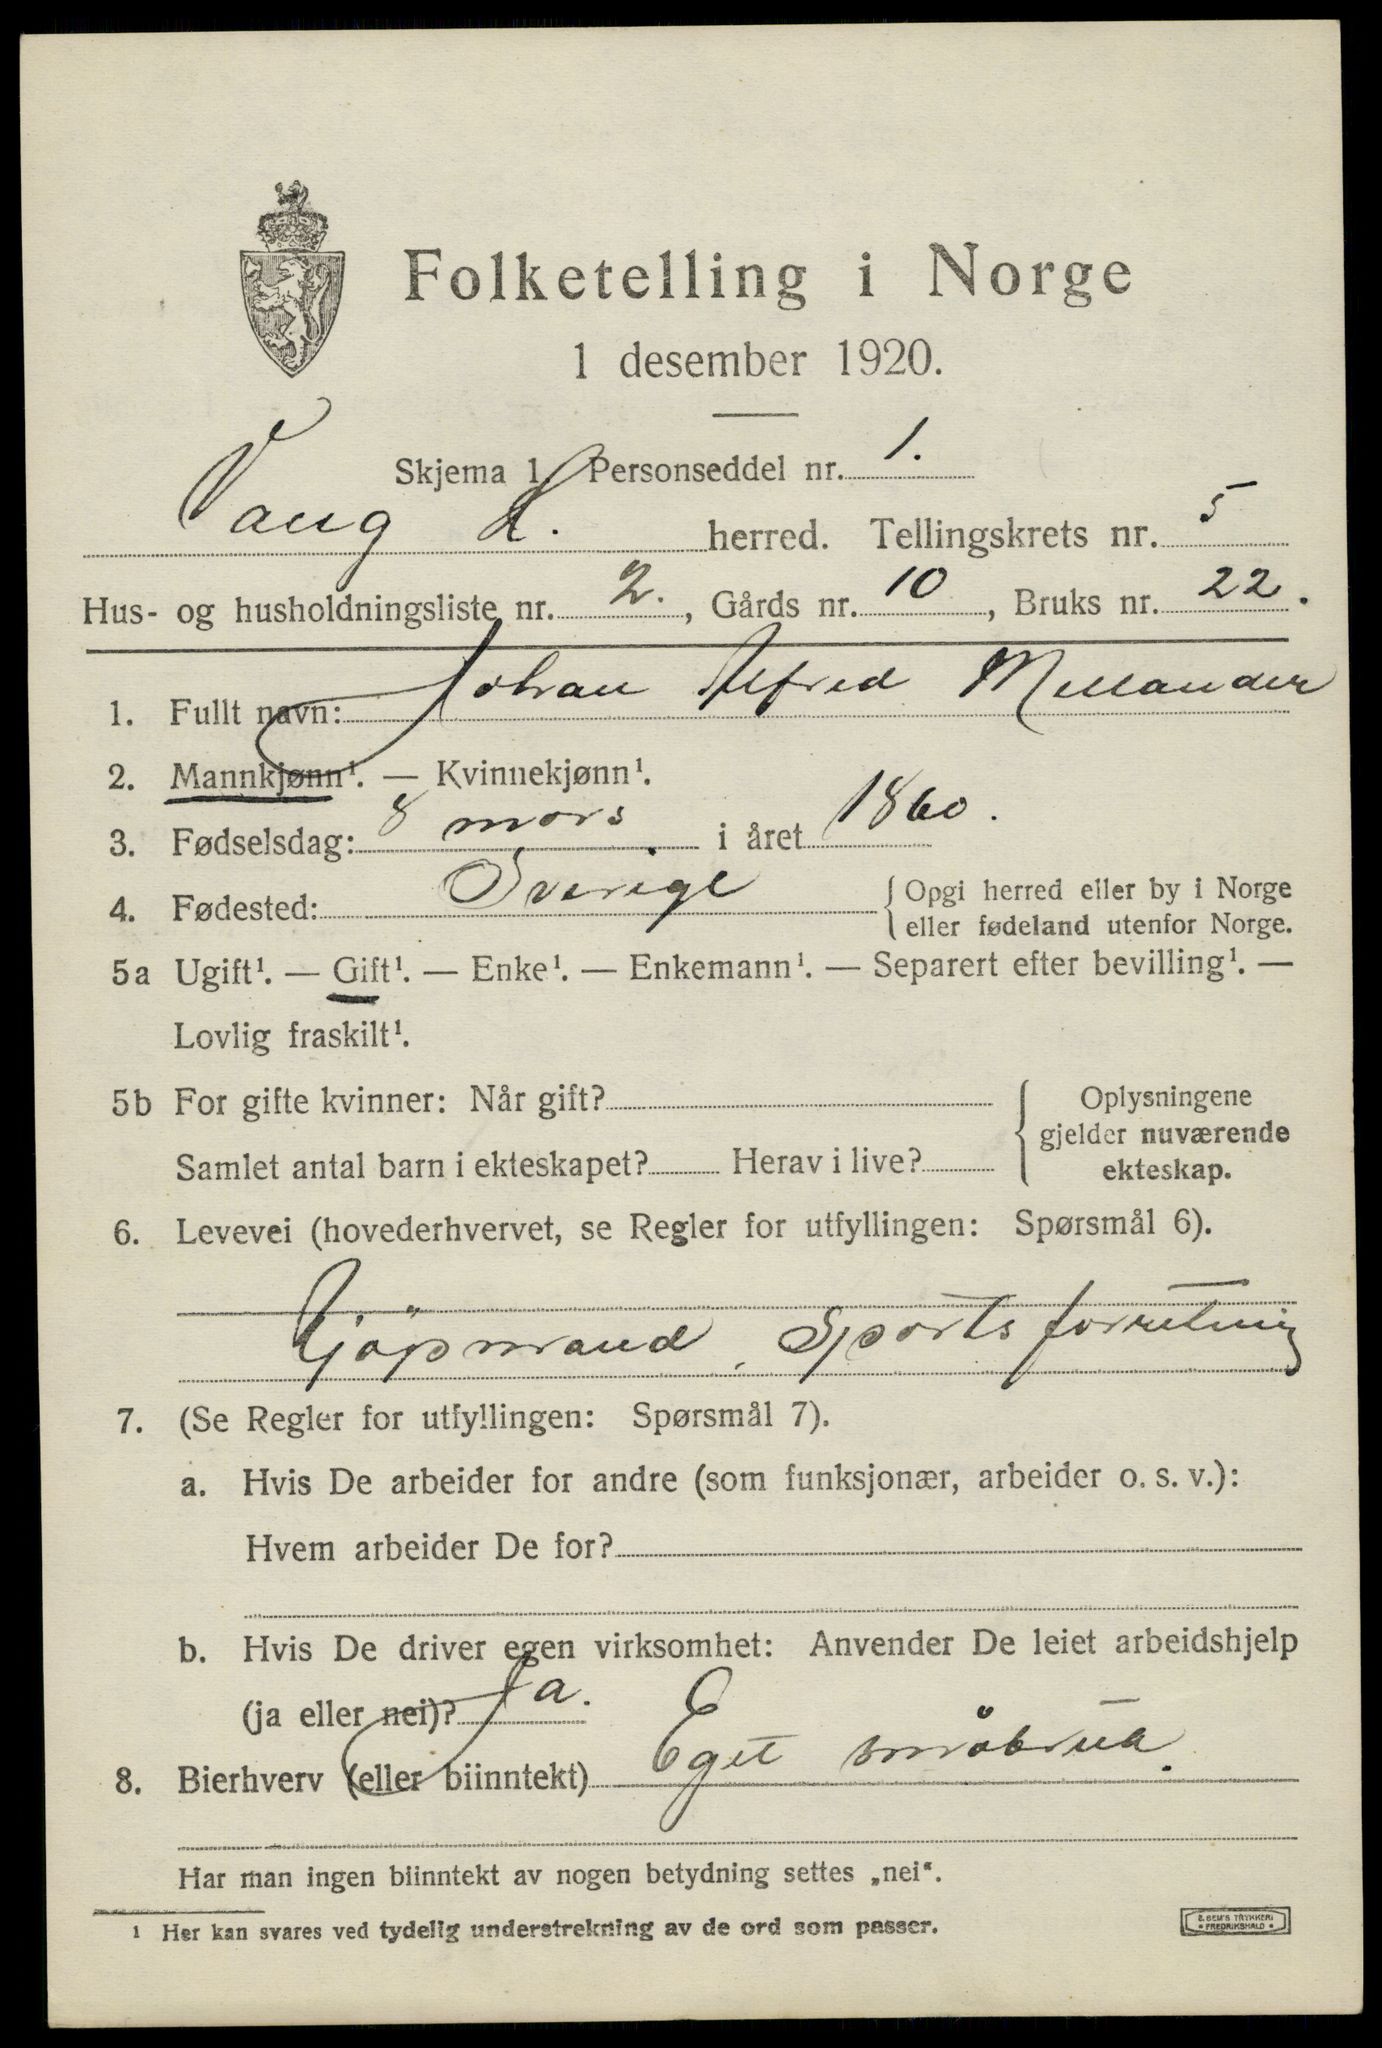 Folketelling i Norge
1 desember 1920.
Skjema 1. Personseddel nr. 1.
Vang H. herred. Tellingskrets nr. 5
Hus- og husholdningsliste nr. 2., Gårds nr. 10, Bruks nr. 22.
1. Fullt navn: Johan Alfred Mellander
2. Mannkjønn¹. — Kvinnekjønn¹.
3. Fødselsdag: 8 mars i året 1860.
4. Fødested: Sverige { Opgi herred eller by i Norge
eller fødeland utenfor Norge.
5a Ugift¹. — Gift¹. — Enke¹. — Enkemann¹. — Separert efter bevilling¹. —
Lovlig fraskilt¹.
5b For gifte kvinner: Når gift? { Oplysningene
gjelder nuværende
Samlet antal barn i ekteskapet? Herav i live? ekteskap.
6. Levevei (hovederhvervet, se Regler for utfyllingen: Spørsmål 6).
Kjöpmand, Sportsforretning
7. (Se Regler for utfyllingen: Spørsmål 7).
a. Hvis De arbeider for andre (som funksjonær, arbeider o. s. v.):
Hvem arbeider De for?
b. Hvis De driver egen virksomhet: Anvender De leiet arbeidshjelp
(ja eller nei)? Ja.
8. Bierhverv (eller biinntekt) Eget småbruk.
Har man ingen biinntekt av nogen betydning settes „nei“.
¹ Her kan svares ved tydelig understrekning av de ord som passer.
E. SEM'S TRYKKERI
• FREDRIKSHALD •